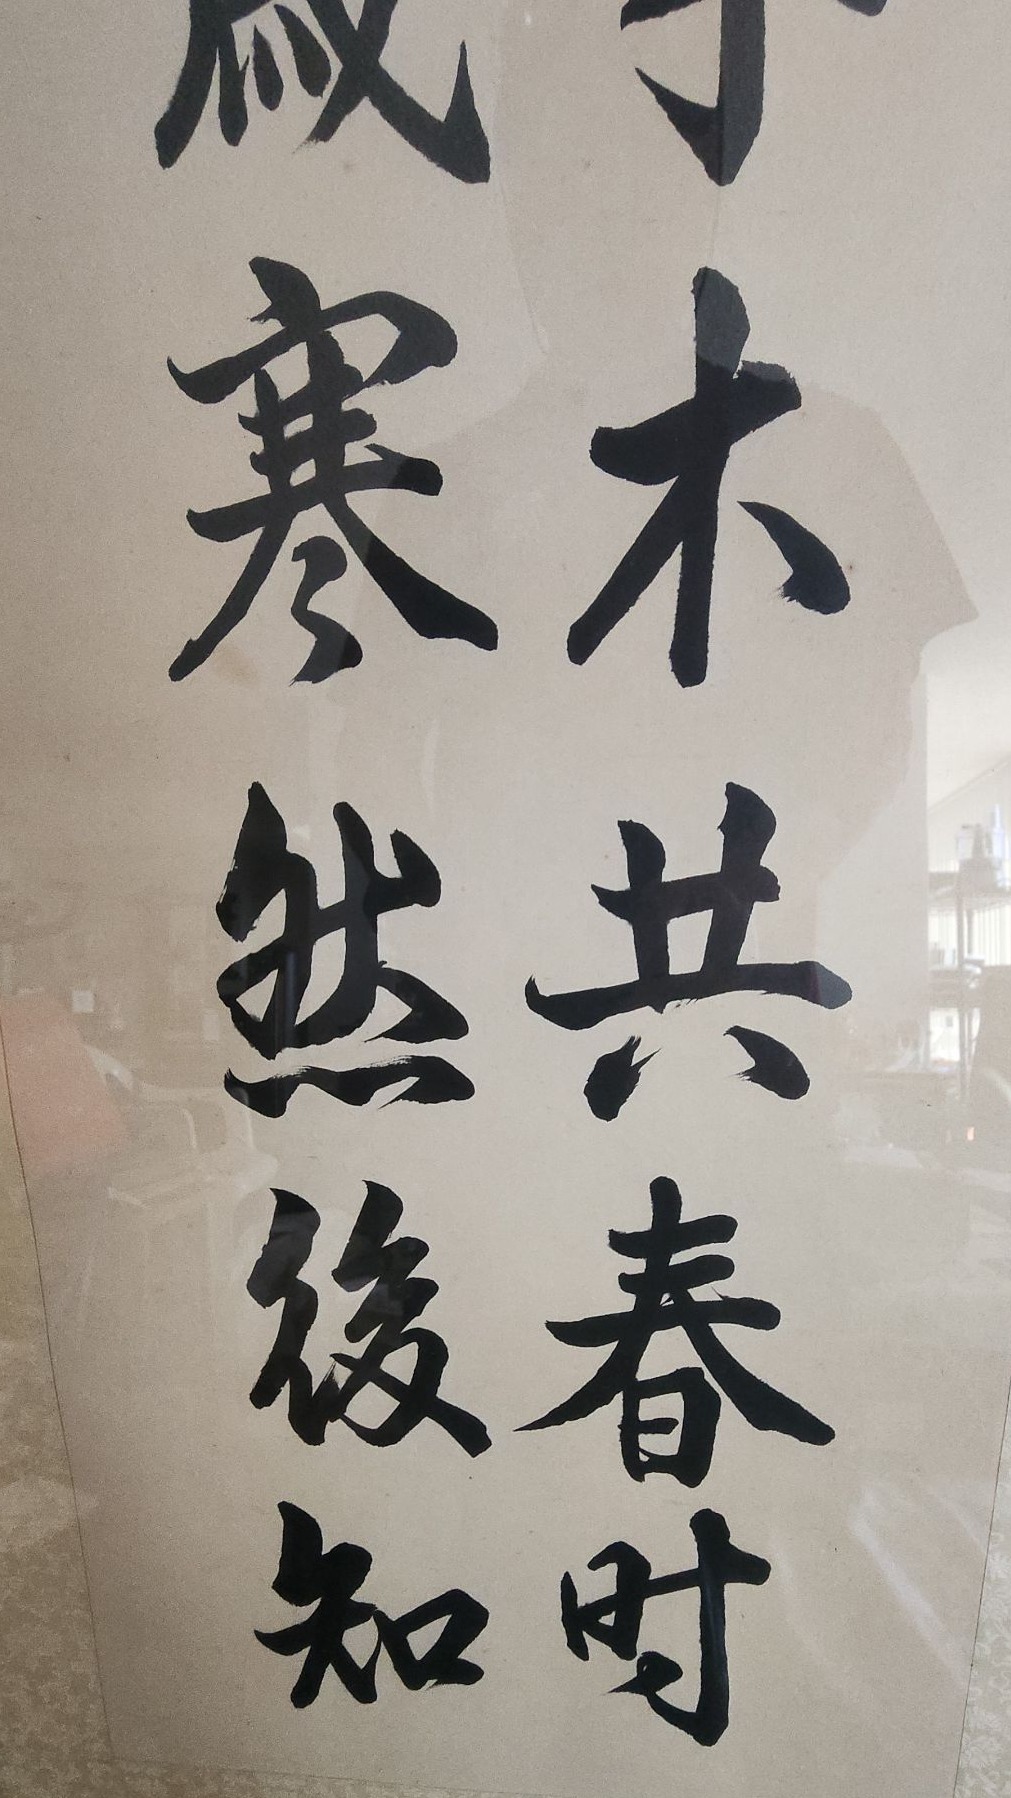 木共春时
歲寒然後知